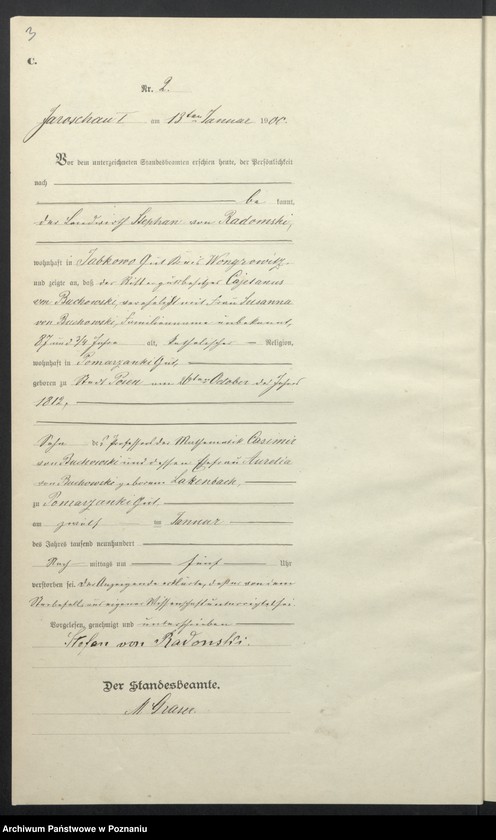 3
C.
Nr. 2.
Jaroschau I am 13ten Januar 1900.
Vor dem unterzeichneten Standesbeamten erschien heute, der Persönlichkeit
nach
be kannt,
der Landwirth Stephan von Radomski,
wohnhaft in Jabkowo Gut Kreis Wongrowitz
und zeigte an, daß der Rittergutsbesitzer Cajetanus
von Buchowski, verehelicht mit Frau Susanna
von Buchowski, Familienname unbekannt,
87 und 1/4 Jahre alt, katholischer Religion,
wohnhaft in Pomarzanki Gut,
geboren zu Stadt Posen am October des Jahres
1812,
Sohn des Professors der Mathematik Casimir
von Buchowski und dessen Ehefrau Aurelia
von Buchowski geborenen
zu Pomarzanki Gut
am zwölf ten Januar
des Jahres tausend neunhundert
Nach mittags um fünf Uhr
verstorben sei. Der Anzeigende erklärte, daß er von dem
Sterbefalle aus eigener Wissenschaft unterrichtet sei.
Vorgelesen, genehmigt und unterschrieben
Stefan von Radonski.
Der Standesbeamte.
Archiwum Państwowe w Poznaniu